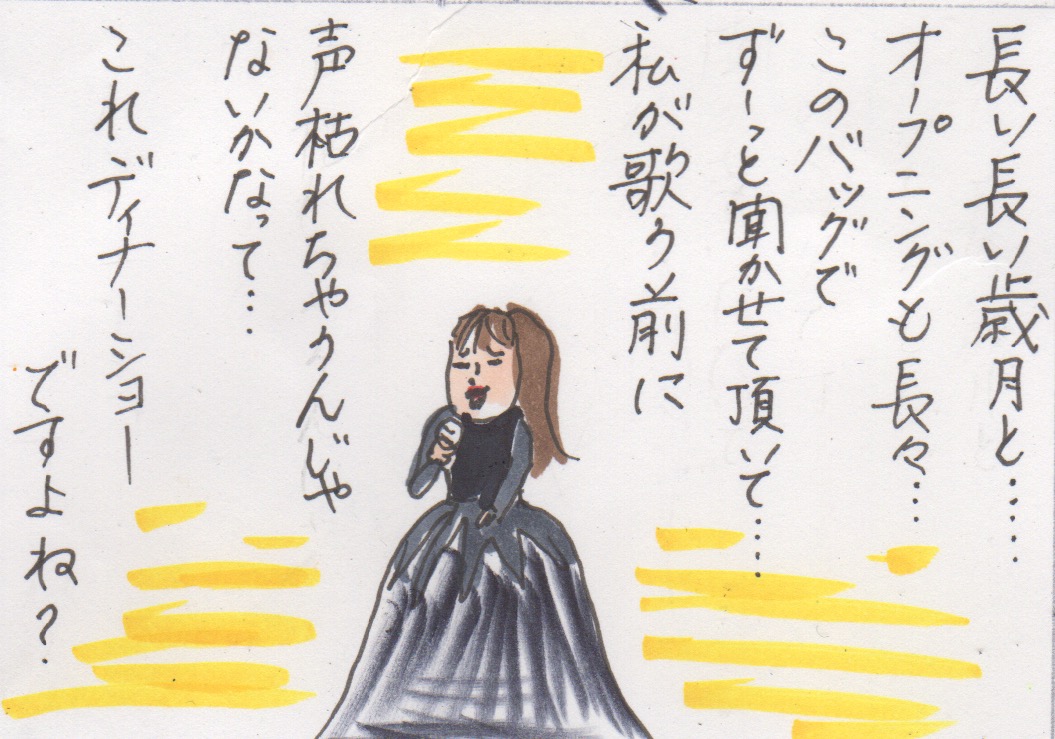 長い長い歳月と……
オープニングも長々…
このバッグで
ずーっと聞かせて頂いて……
私が歌う前に
声枯れちゃうんじゃ
ないかなって…
これディナーショー
ですよね?